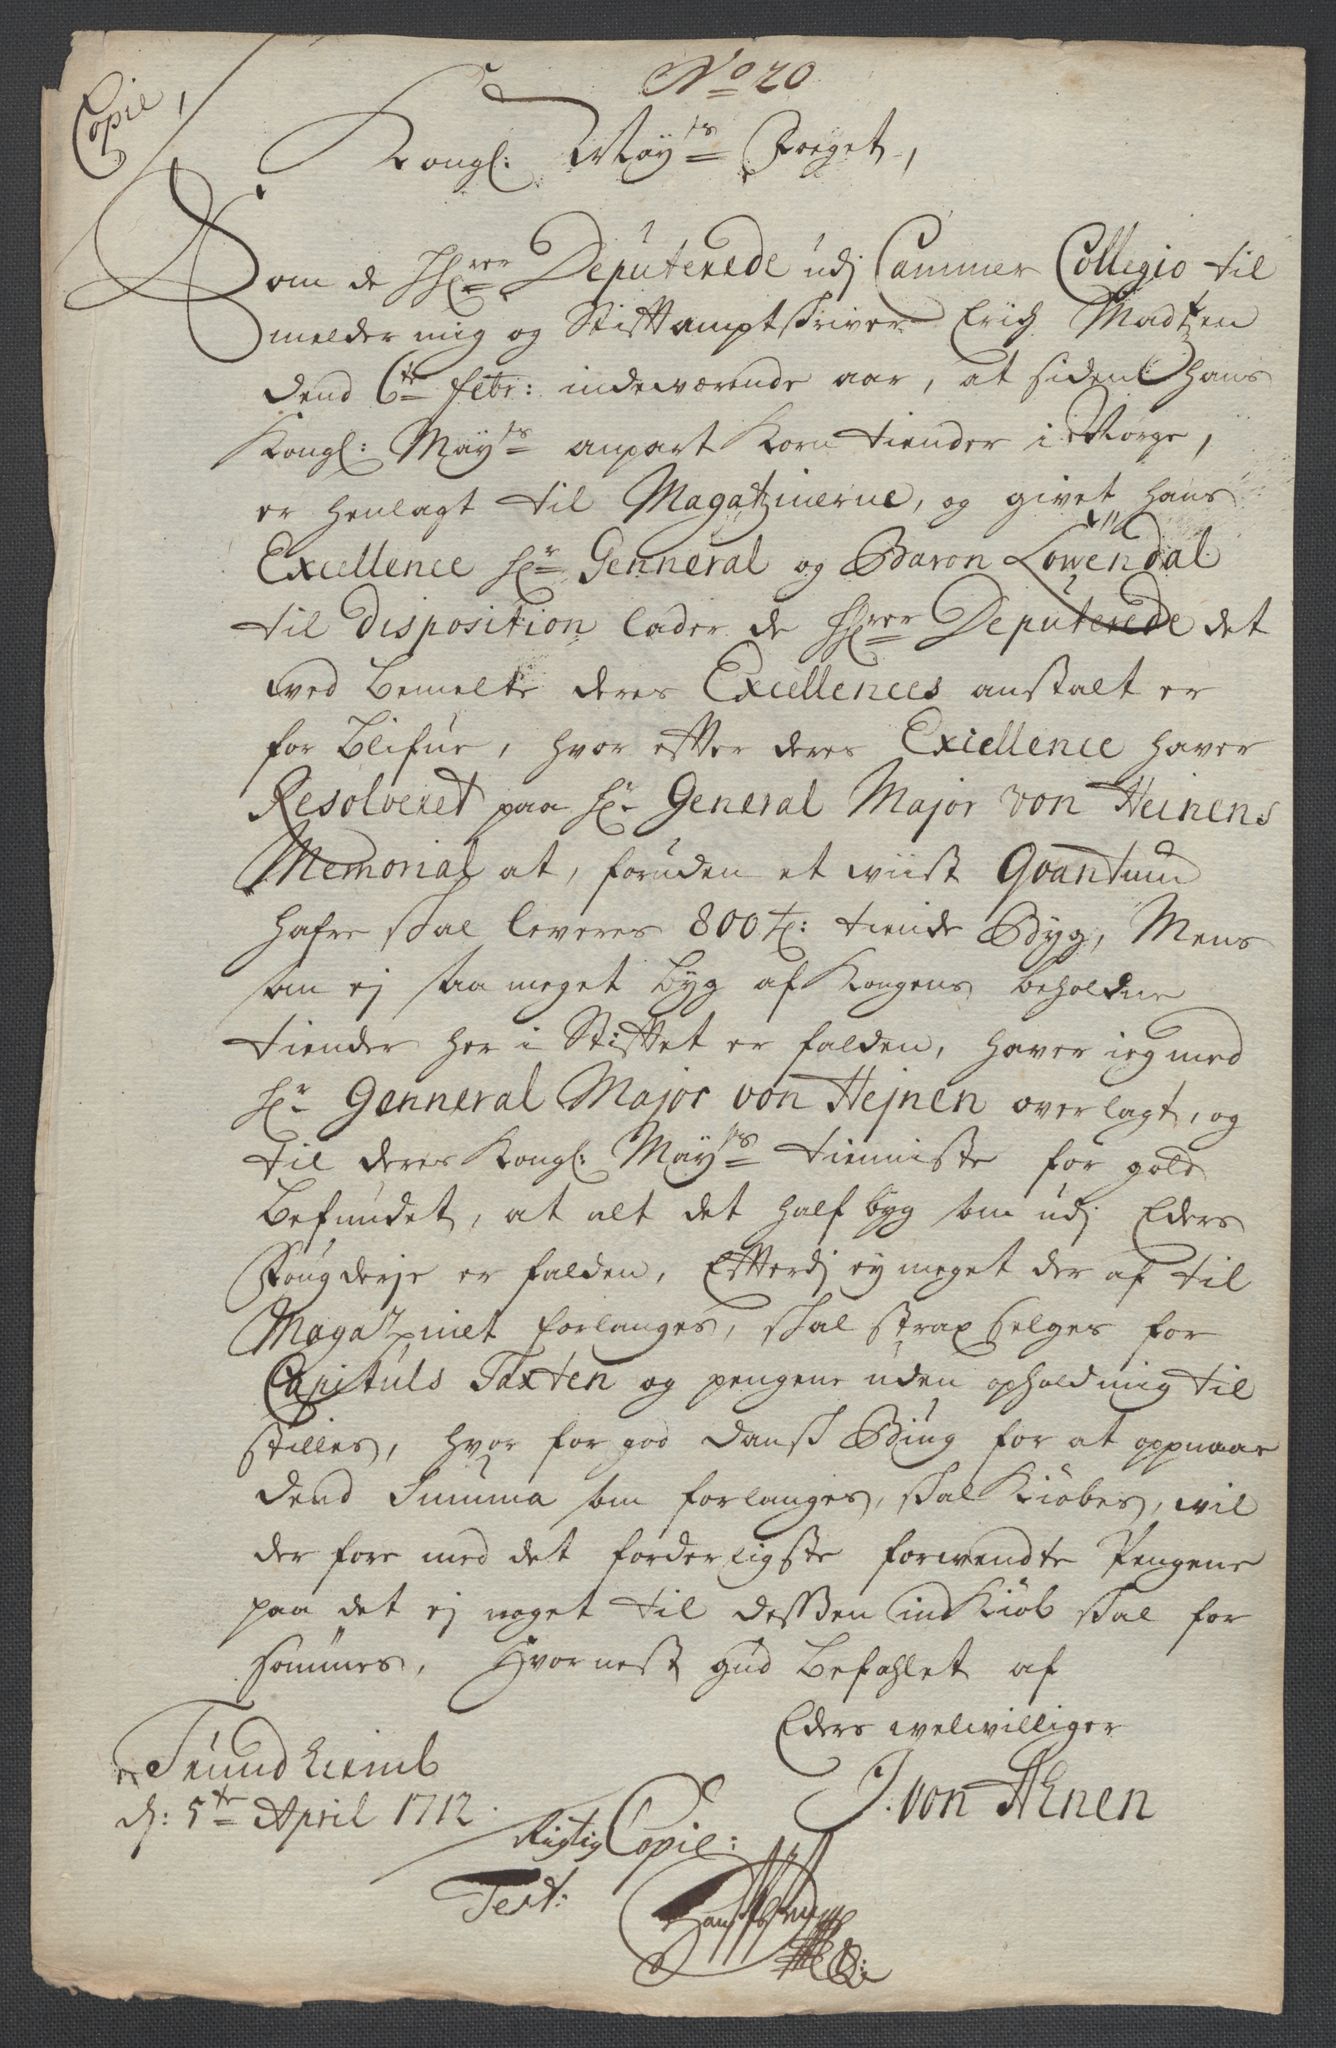 No 20
Copie,
Kongl: Mayts Foeget,
Som de Hrer Deputerede udj Cammer Collegio til
melder mig og Stiftamptskriver Erich Madtzen
dend 6te febr: indeværende aar, at siden hans
Kongl: Mayts anpart Korn tiender i Norge,
er henlagt til Magatzinerne, og givet hans
Excellence Hr Genneral og Baron Löwendal
til disposition lader de Hrer Deputerede det
ved bemelte deres Excellences anstalt er
for blifue, hvor efter deres Exiellence haver
Resolveret paa Hr General Major von Heinens
Memorial at, foruden et wiist Qvantum
hafre skal leveres 800 t: tiende Byg, Mens
som ej saa meget byg af Kongens beholdne
tiender her i Stiftet er falden, haver ieg med
Hr Genneral Major von Hejnen overlagt, og
til deres Kongl: Mayts tienniste for got
befundet, at alt det half byg som udj Eders
Fougderje er falden, Efterdj ey meget der af til
Magatzinet forlanges, skal strax selges for
Capituls Taxten og pengene uden ophold mig til
stilles, hvor for god dansk Biug for at oppnaae
dend Summa som forlanges, skal Kiøbes, wil
der fore med det forderligste forwendte Pengene
paa det ej noget til dessen ind Kiøb skal for
sømmes, Hvornest gud befahlet af
Eders welwilliger
J. von Ahnen
Trundheimb
d: 5te April 1712
Rigtig Copie:
Test: